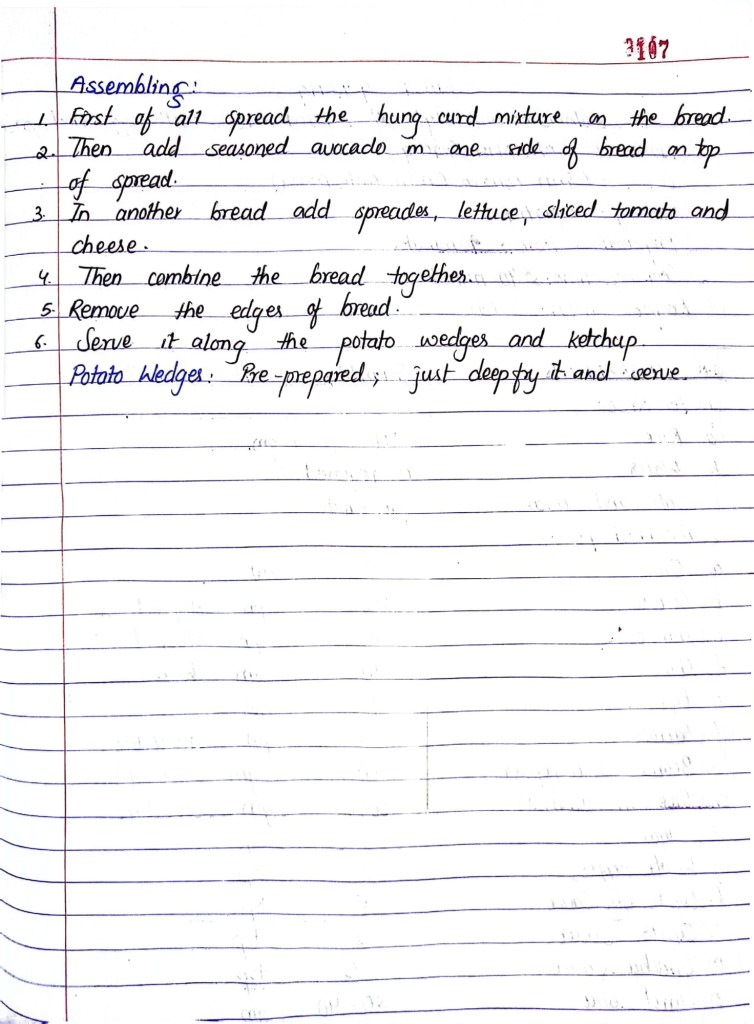 3107
Assembling:
1. First of all spread the hung curd mixture on the bread.
2. Then add seasoned avocado in one side of bread on top
of spread.
3. In another bread add spreades, lettuce, sliced tomato and
cheese.
4. Then combine the bread together.
5. Remove the edges of bread.
6. Serve it along the potato wedges and ketchup.
Potato Wedges: Pre-prepared; just deep fry it and serve.